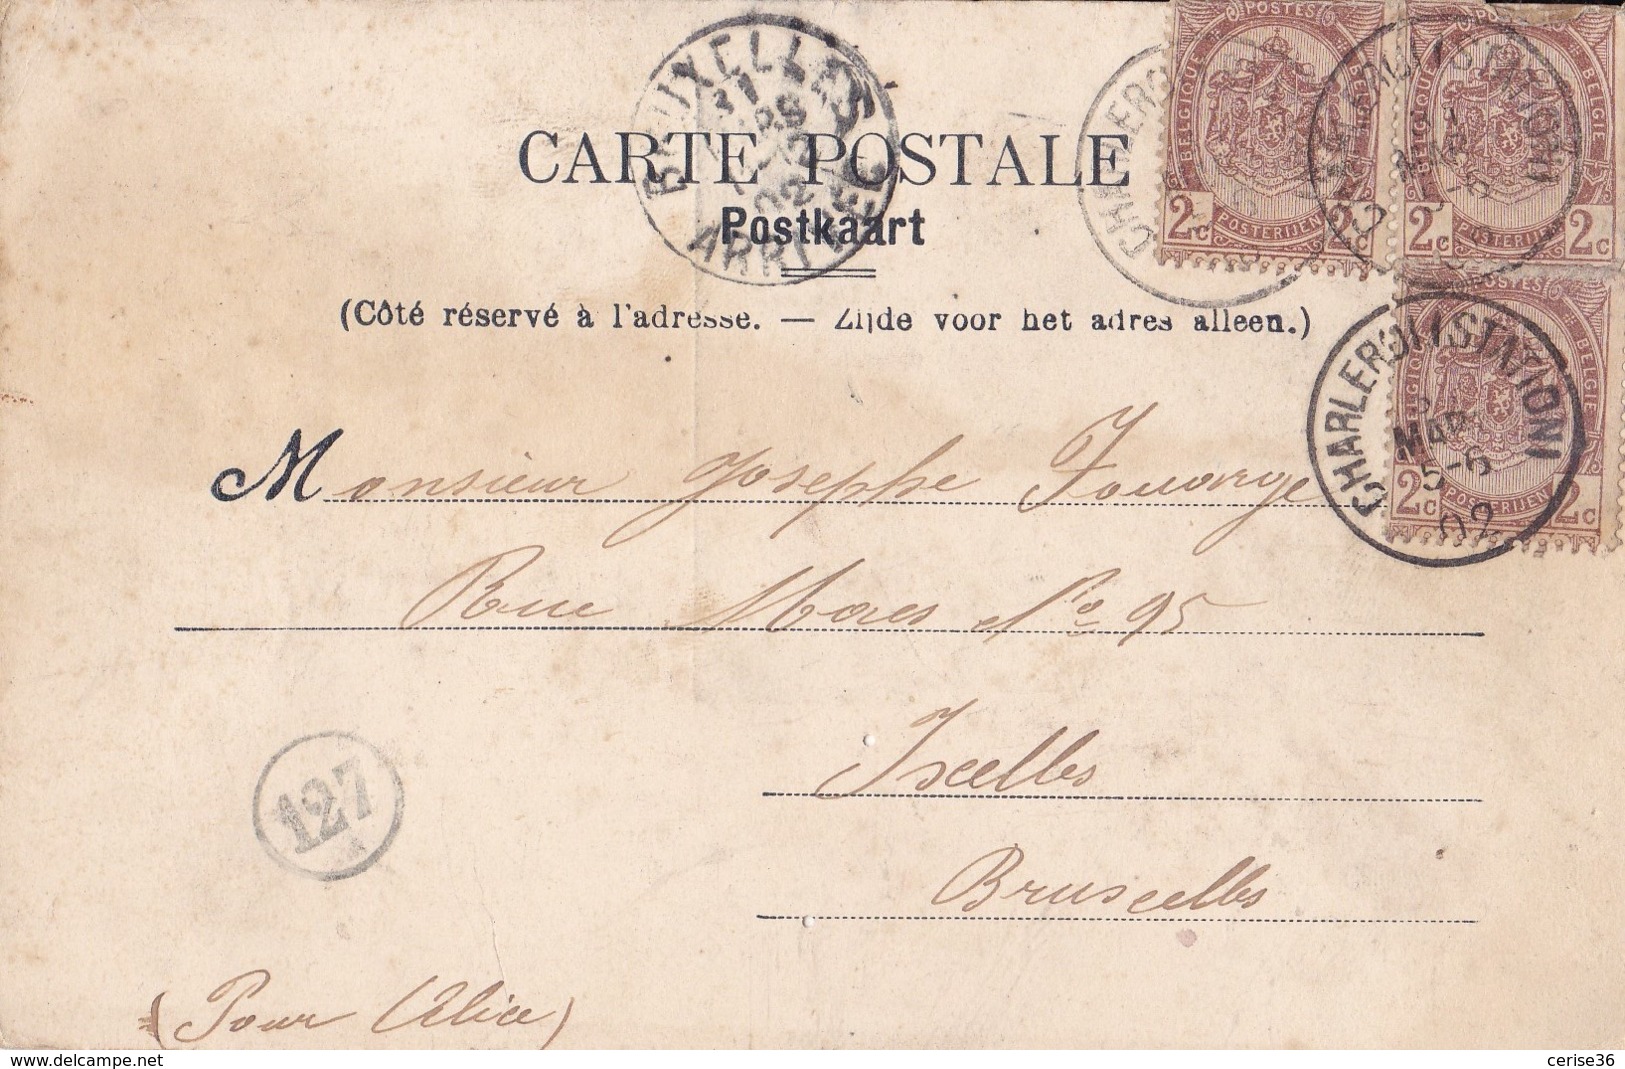 BRUXELLES
31
02
ARRIVÉE
CARTE POSTALE
Postkaart
(Côté réservé à l'adresse. — Zijde voor het adres alleen.)
POSTES
BELGIQUE BELGIE
2c POSTERIJEN 2c
POSTES
BELGIQUE BELGIE
2c POSTERIJEN 2c
POSTES
BELGIQUE BELGIE
2c POSTERIJEN 2c
CHARLEROI (STATION)
MARS
5-6
02
Monsieur Joseph Fouarge
Rue Maes No 95
Ixelles
Bruxelles
127
(Pour Alice)
www.delcampe.net
cerise36